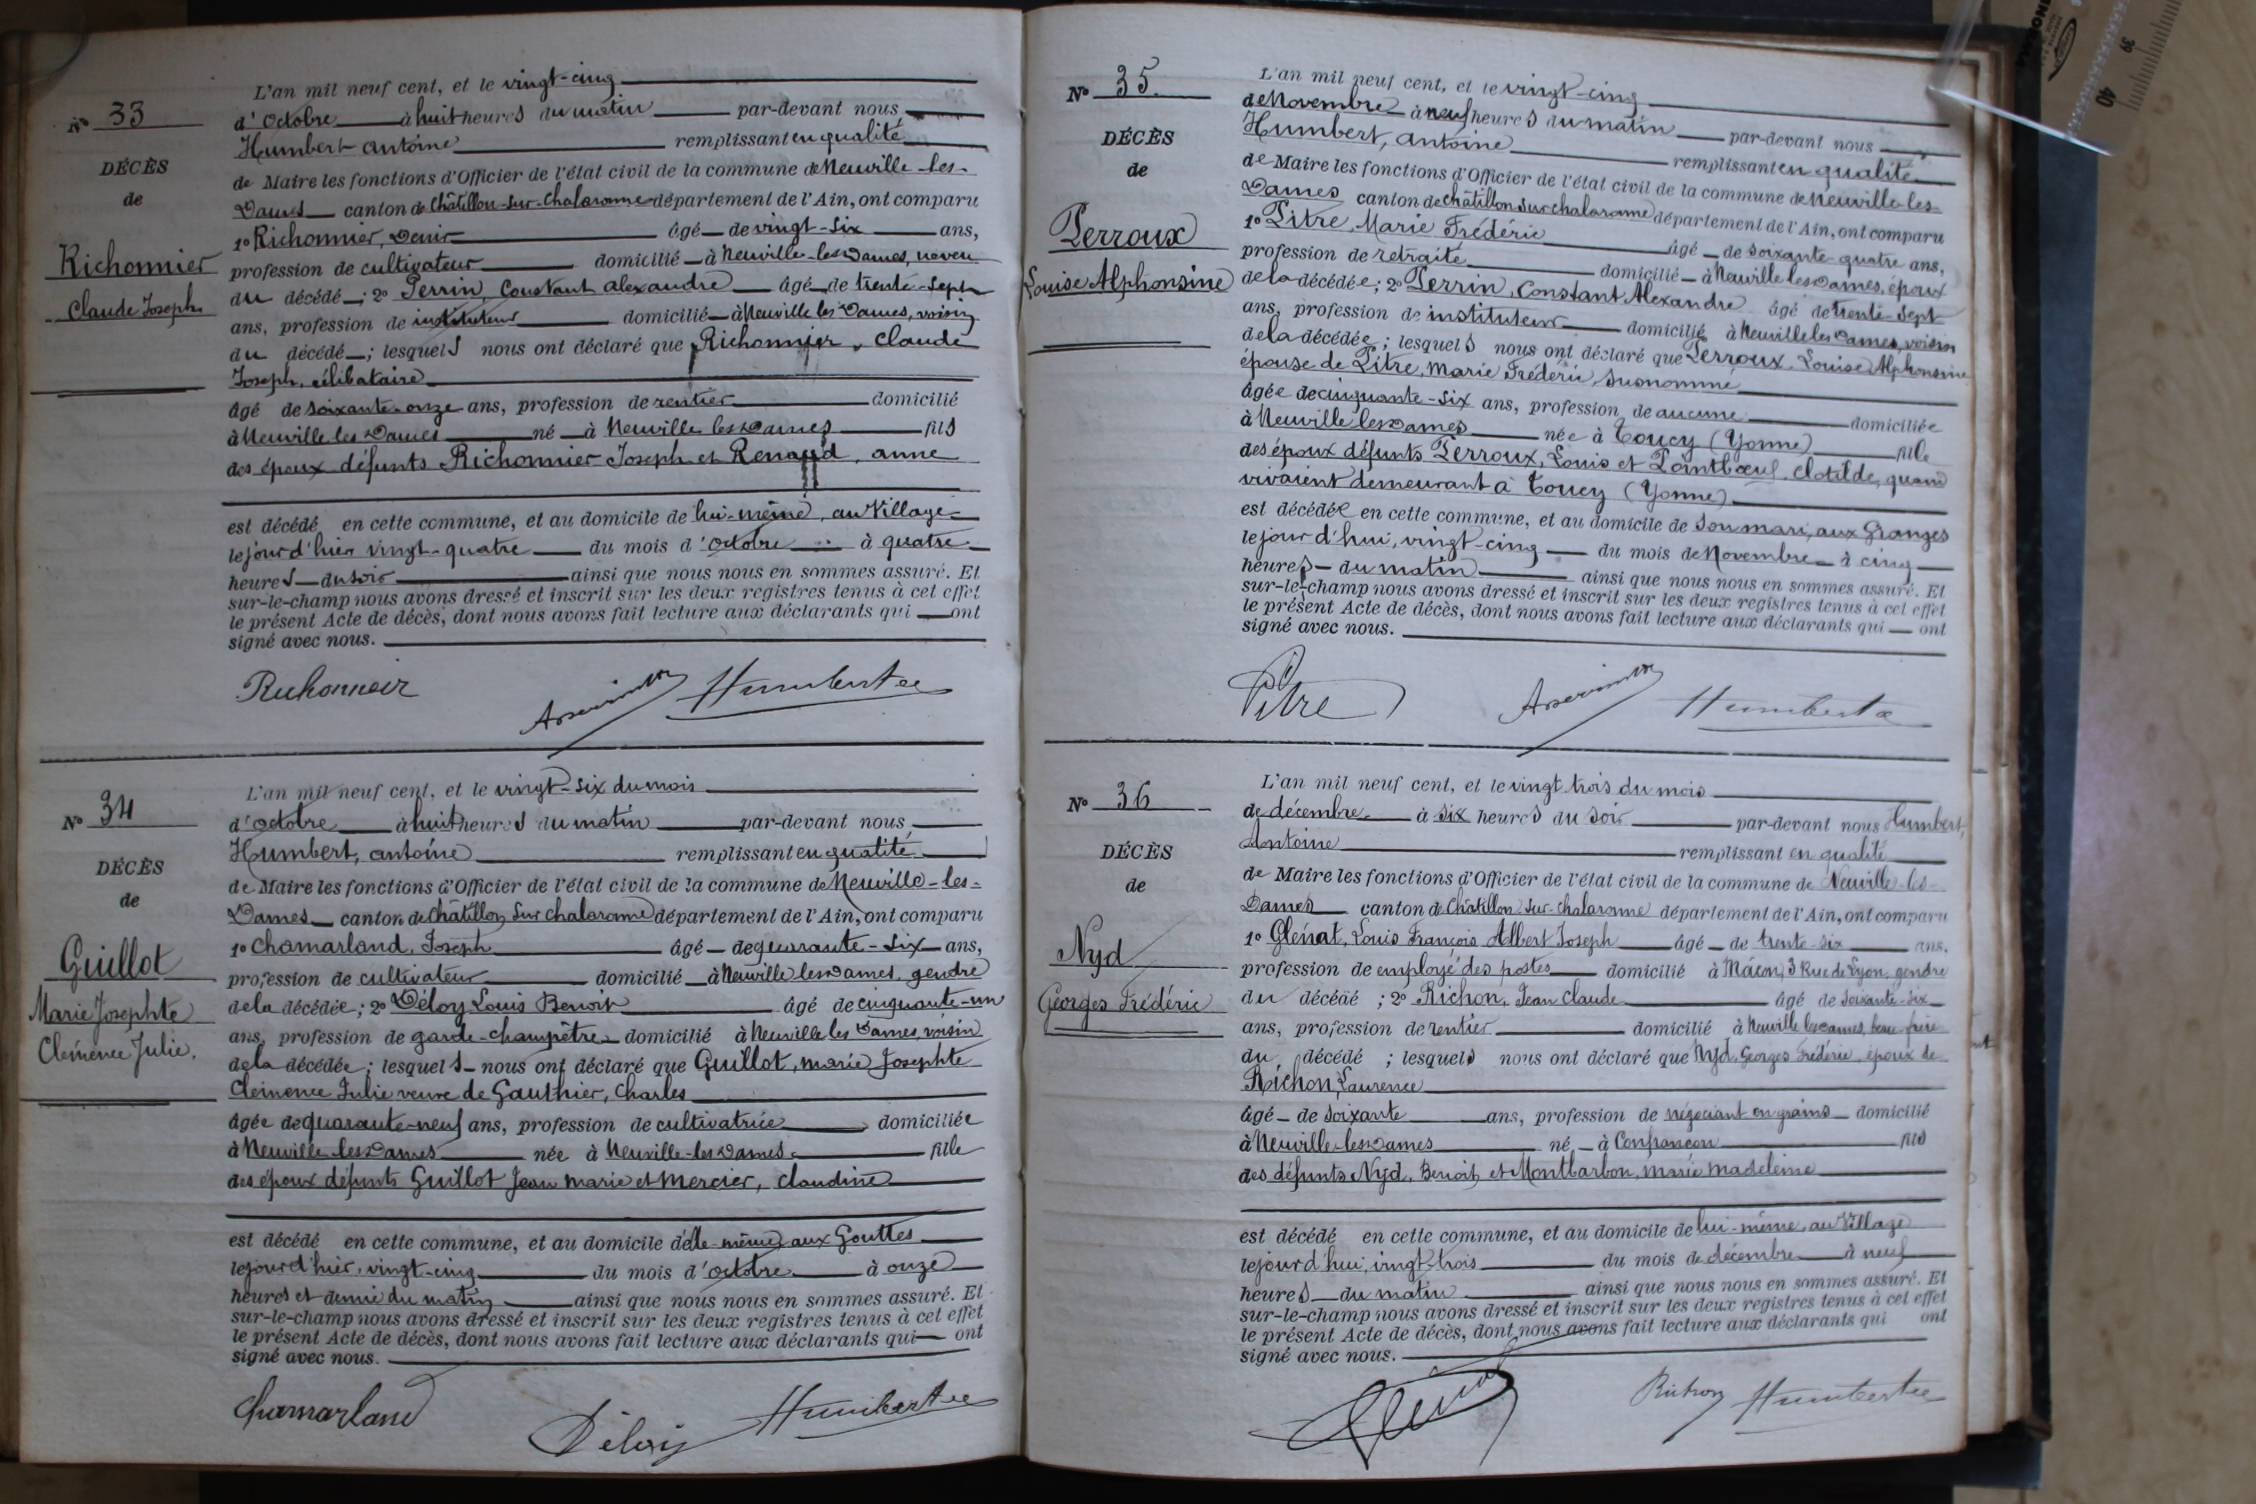 N° 33
DÉCÈS
de
Richonnier
Claude Joseph
L'an mil neuf cent, et le vingt-cinq
d'Octobre à huit heures du matin par-devant nous
Humbert antoine remplissant en qualité
de Maire les fonctions d'Officier de l'état civil de la commune de Neuville-les-
Dames canton de Châtillon-sur-Chalaronne département de l'Ain, ont comparu
1° Richonnier, Denis âgé de vingt-six ans,
profession de cultivateur domicilié à Neuville-les Dames, neveu
du décédé ; 2° Perrin, Constant alexandre âgé de trente-sept
ans, profession de instituteur domicilié à Neuville les Dames, voisin
du décédé ; lesquels nous ont déclaré que Richonnier, Claude
Joseph, célibataire
âgé de soixante-onze ans, profession de rentier domicilié
à Neuville les Dames né à Neuville les Dames fils
des époux défunts Richonnier Joseph et Renaud, anne
est décédé en cette commune, et au domicile de lui-même, au Village
le jour d'hier vingt-quatre du mois d'octobre à quatre
heures du soir ainsi que nous nous en sommes assuré. Et
sur-le-champ nous avons dressé et inscrit sur les deux registres tenus à cet effet
le présent Acte de décès, dont nous avons fait lecture aux déclarants qui ont
signé avec nous.
Richonnier Humbert
N° 34
DÉCÈS
de
Guillot
Marie Josephte
Clémence Julie.
L'an mil neuf cent, et le vingt-six du mois
d'octobre à huit heures du matin par-devant nous
Humbert, antoine remplissant en qualité
de Maire les fonctions d'Officier de l'état civil de la commune de Neuville-les-
Dames canton de Châtillon sur Chalaronne département de l'Ain, ont comparu
1° Chamarland, Joseph âgé de quarante-six ans,
profession de cultivateur domicilié à Neuville les Dames, gendre
de la décédée ; 2° Déloy Louis Benoit âgé de cinquante-un
ans, profession de garde-champêtre domicilié à Neuville les Dames, voisin
de la décédée ; lesquels nous ont déclaré que Guillot, marie Josephte
Clémence Julie veuve de Gauthier, Charles
âgée de quarante-neuf ans, profession de cultivatrice domiciliée
à Neuville les Dames née à Neuville-les Dames fille
des époux défunts Guillot Jean marie et Mercier, Claudine
est décédé en cette commune, et au domicile d'elle-même, aux Gouttes
le jour d'hier, vingt-cinq du mois d'octobre à onze
heures et demie du matin ainsi que nous nous en sommes assuré. Et
sur-le-champ nous avons dressé et inscrit sur les deux registres tenus à cet effet
le présent Acte de décès, dont nous avons fait lecture aux déclarants qui ont
signé avec nous.
Chamarland Déloy Humbert
N° 35.
DÉCÈS
de
Perroux
Louise Alphonsine
L'an mil neuf cent, et le vingt-cinq
de Novembre à neuf heures du matin par-devant nous
Humbert, Antoine remplissant en qualité
de Maire les fonctions d'Officier de l'état civil de la commune de Neuville-les-
Dames canton de châtillon sur chalaronne département de l'Ain, ont comparu
1° Pitre, Marie Frédéric âgé de soixante-quatre ans,
profession de retraité domicilié à Neuville les Dames, époux
de la décédée ; 2° Perrin, Constant Alexandre âgé de trente-sept
ans, profession de instituteur domicilié à Neuville les Dames, voisin
de la décédée ; lesquels nous ont déclaré que Perroux, Louise Alphonsine
épouse de Pitre, Marie Frédéric, susnommé
âgée de cinquante-six ans, profession de aucune domiciliée
à Neuville les Dames née à Toucy (Yonne) fille
des époux défunts Perroux, Louis et Pointboeuf, Clotilde, quand
vivaient demeurant à Toucy (Yonne)
est décédée en cette commune, et au domicile de son mari, aux Granges
le jour d'hui, vingt-cinq du mois de Novembre à cinq
heures du matin ainsi que nous nous en sommes assuré. Et
sur-le-champ nous avons dressé et inscrit sur les deux registres tenus à cet effet
le présent Acte de décès, dont nous avons fait lecture aux déclarants qui ont
signé avec nous.
Pitre Humbert
N° 36
DÉCÈS
de
Nyd
Georges Frédéric
L'an mil neuf cent, et le vingt trois du mois
de décembre à six heures du soir par-devant nous Humbert,
Antoine remplissant en qualité
de Maire les fonctions d'Officier de l'état civil de la commune de Neuville-les-
Dames canton de Châtillon-sur-Chalaronne département de l'Ain, ont comparu
1° Glénat, Louis François Albert Joseph âgé de trente-six ans,
profession de employé des postes domicilié à Mâcon, 3 Rue de Lyon, gendre
du décédé ; 2° Richon, Jean Claude âgé de soixante-six
ans, profession de rentier domicilié à Neuville les Dames, beau-frère
du décédé ; lesquels nous ont déclaré que Nyd, Georges Frédéric, époux de
Richon, Laurence
âgé de soixante ans, profession de négociant en grains domicilié
à Neuville-les Dames né à Confrançon fils
des défunts Nyd, Benoit et Montbarbon, marie madeleine
est décédé en cette commune, et au domicile de lui-même, au Village
le jour d'hui, vingt-trois du mois de décembre à neuf
heures du matin ainsi que nous nous en sommes assuré. Et
sur-le-champ nous avons dressé et inscrit sur les deux registres tenus à cet effet
le présent Acte de décès, dont nous avons fait lecture aux déclarants qui ont
signé avec nous.
Richon Humbert
39
40